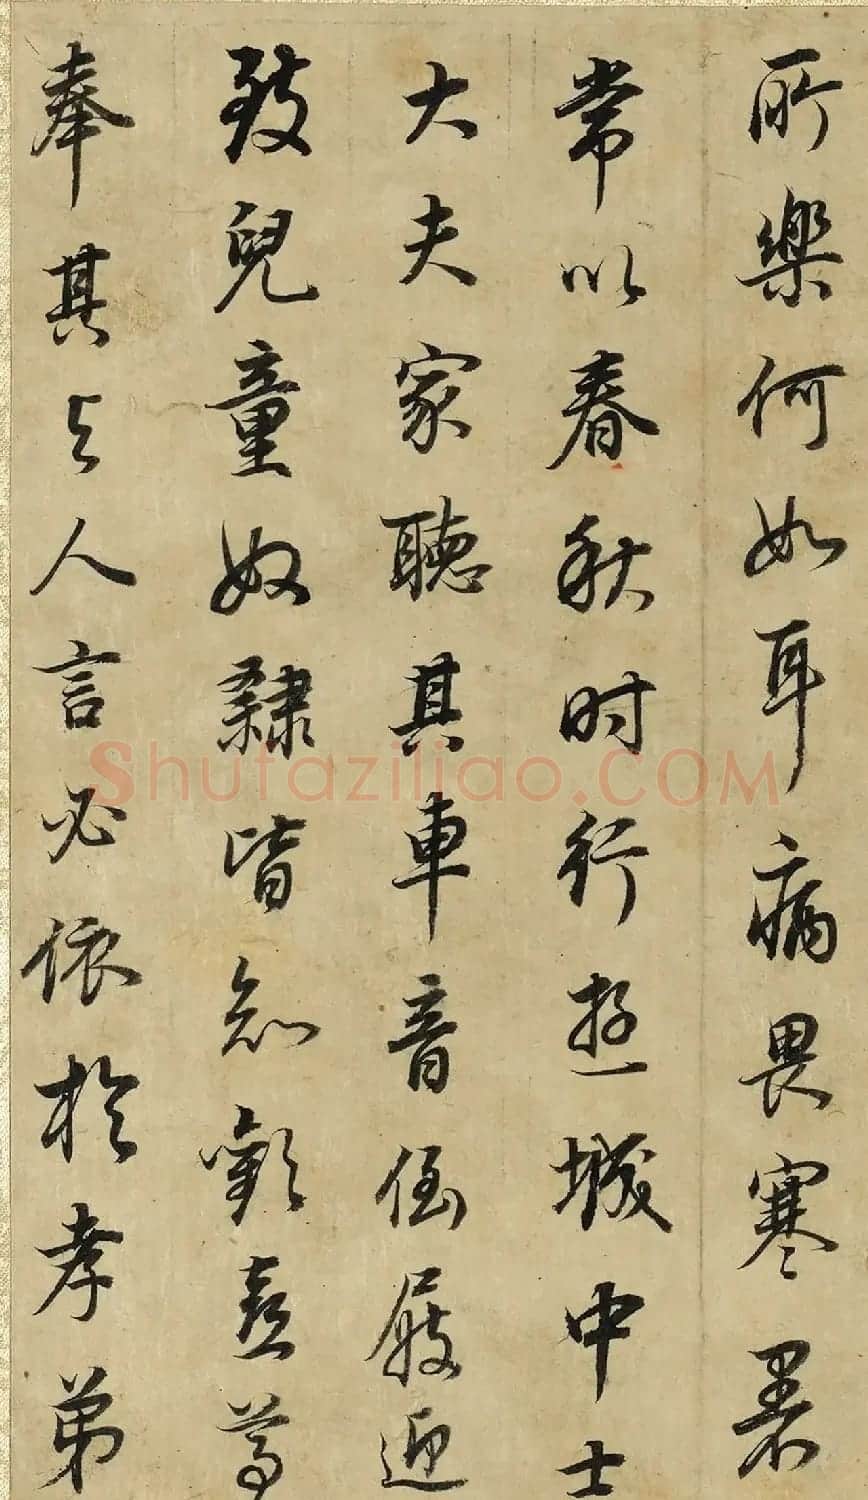 所樂何如耳病畏寒暑
常以春秋时行遊城中士
大夫家聽其車音倒屐迎
致兒童奴隸皆知歡喜尊
奉其与人言必依於孝弟
Shufaziliao.COM